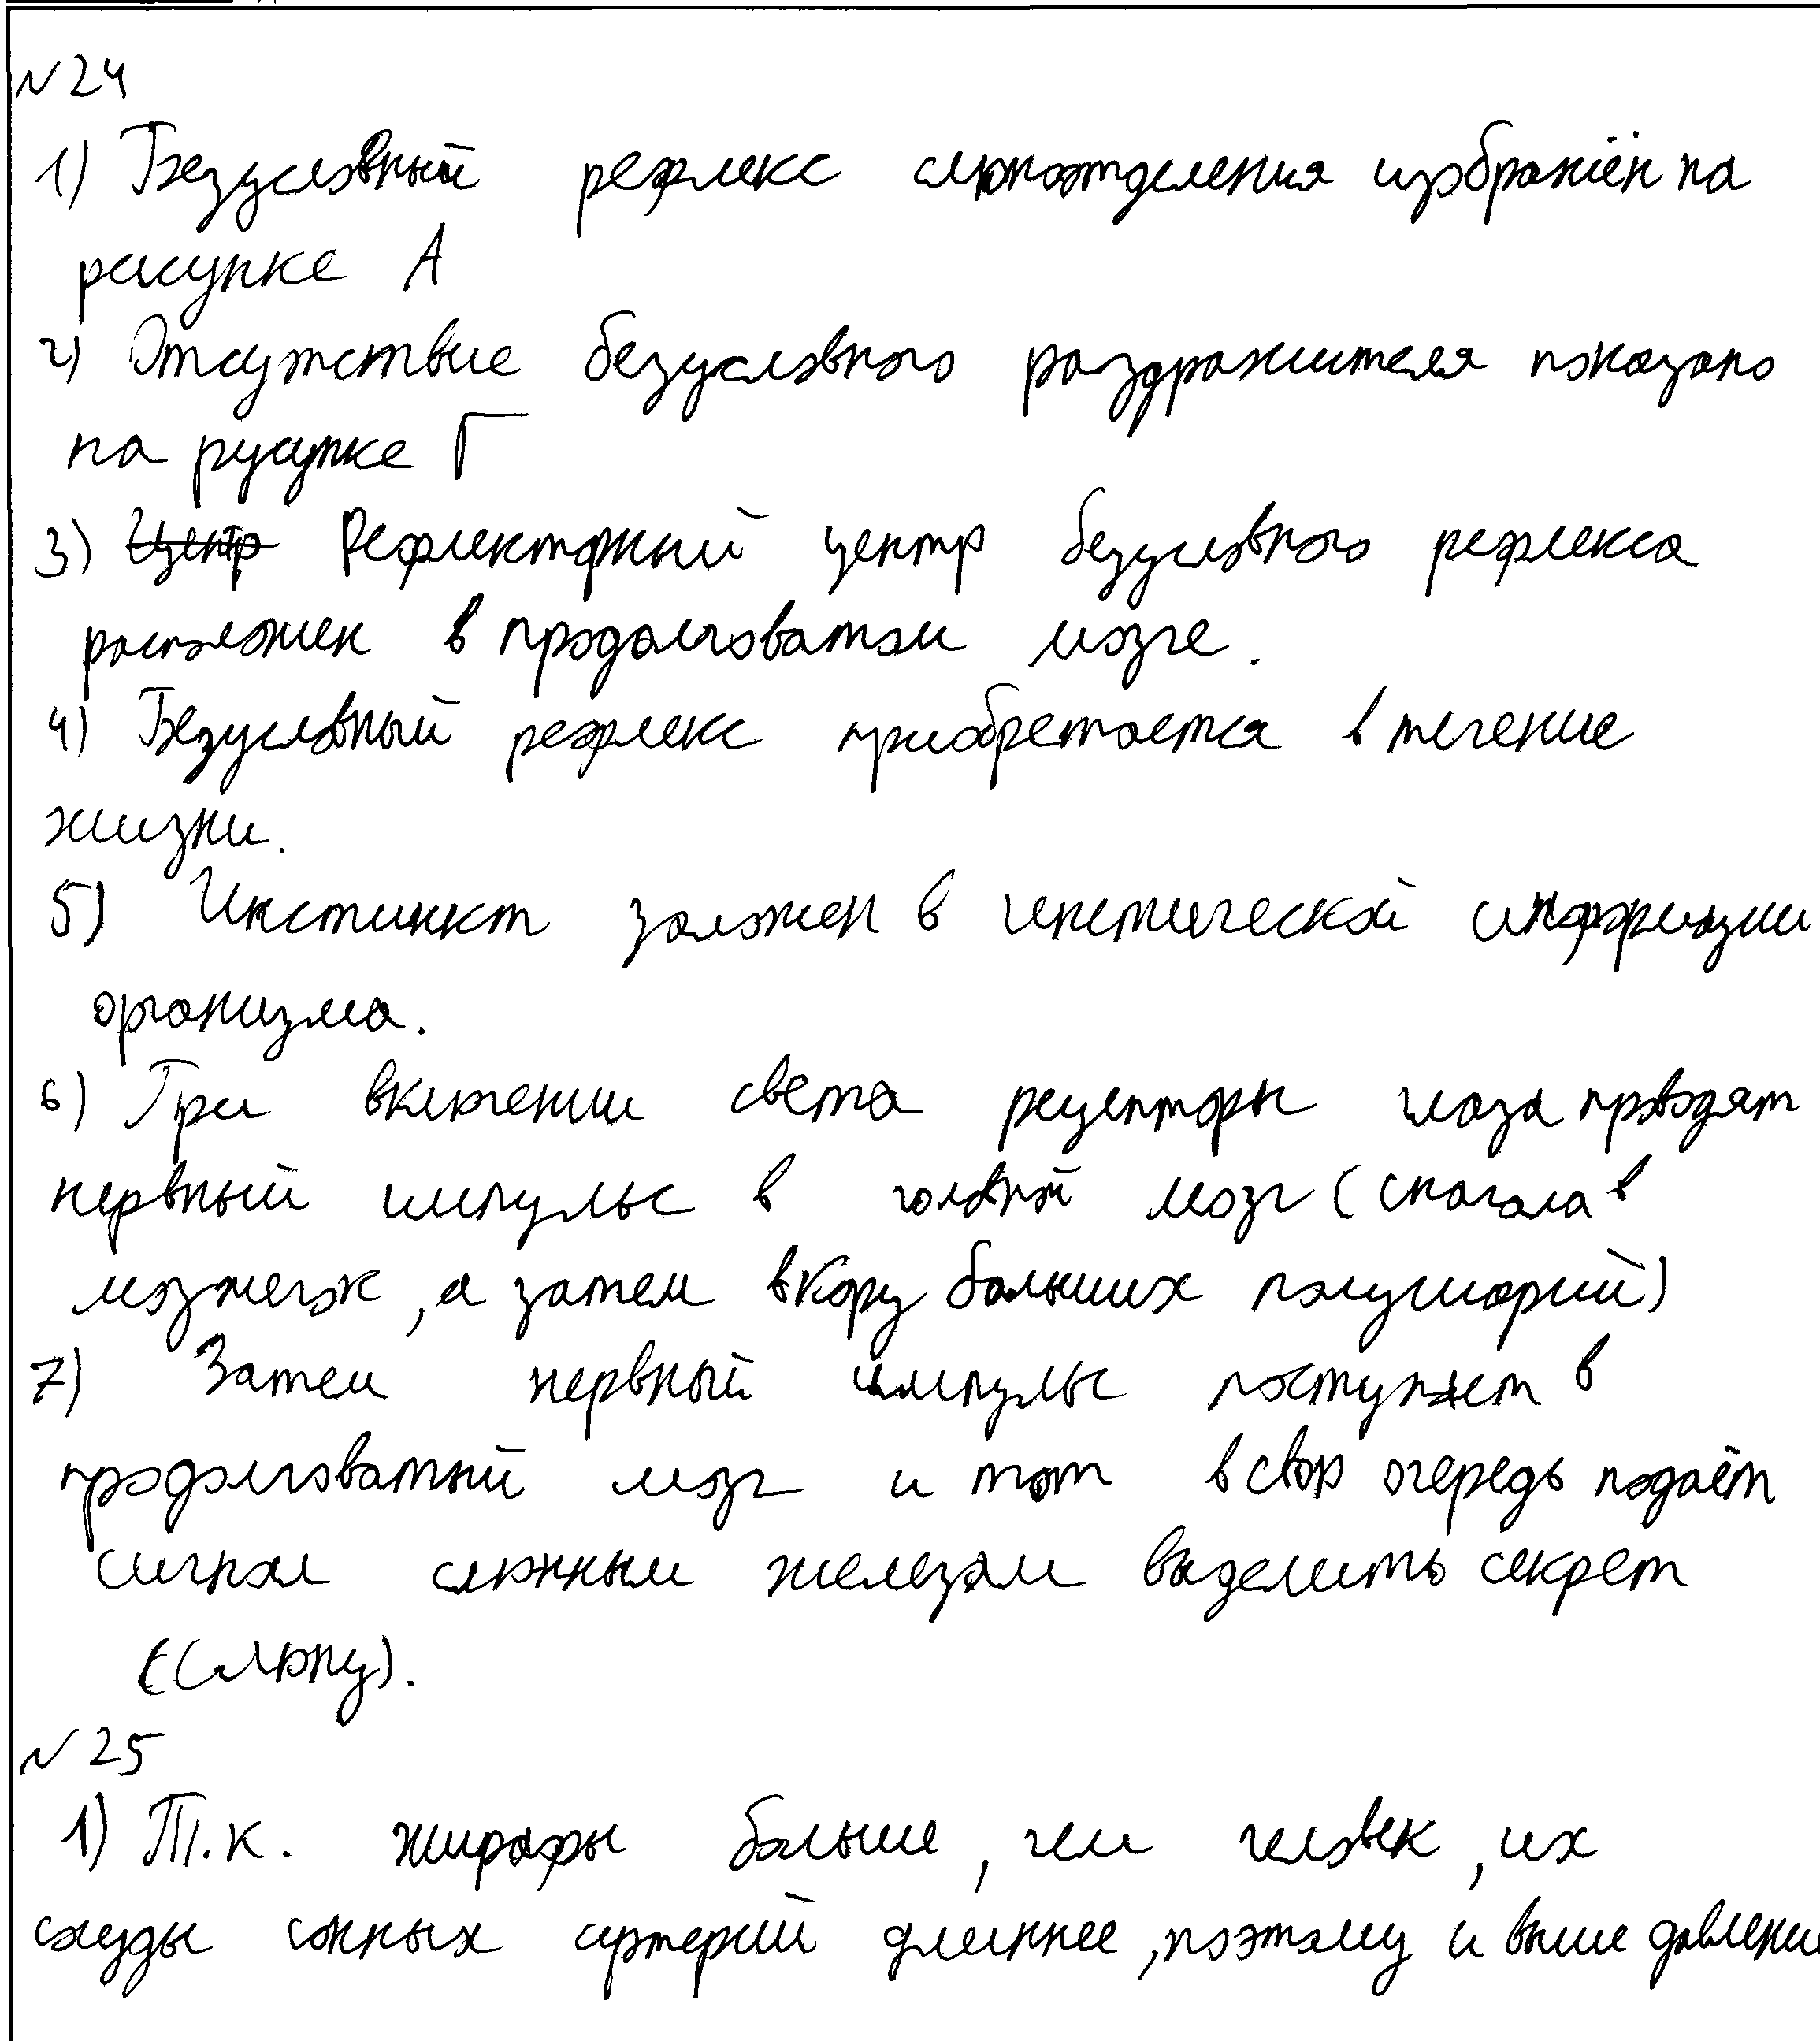 №24
1) Безусловный рефлекс слюноотделения изображён на
рисунке А
2) Отсутствие безусловного раздражителя показано
на русунке Г
3) Центр Рефлекторный центр безусловного рефлекса
расположен в продолговатом мозге.
4) Безусловный рефлекс приобретается в течение
жизни.
5) Инстинкт заложен в генетической информации
организма.
6) При включении света рецепторы глаза проводят
нервный импульс в головной мозг (сначала в
мозжечок, а затем в кору больших полушарий)
7) Затем нервный импульс поступает в
продолговатый мозг и тот в свою очередь подаёт
сигнал слюнным железам выделить секрет
(слюну).
№25
1) Т.к. жирафы больше, чем человек, их
сосуды сонных артерий длиннее, поэтому и выше давление